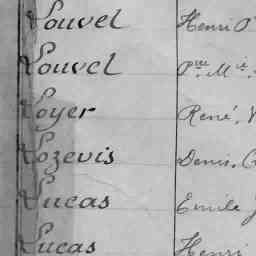 Louvel Henri
Louvel Pre. Mie.
Loyer René,
Lozevis Denis,
Lucas Emile
Lucas Henri